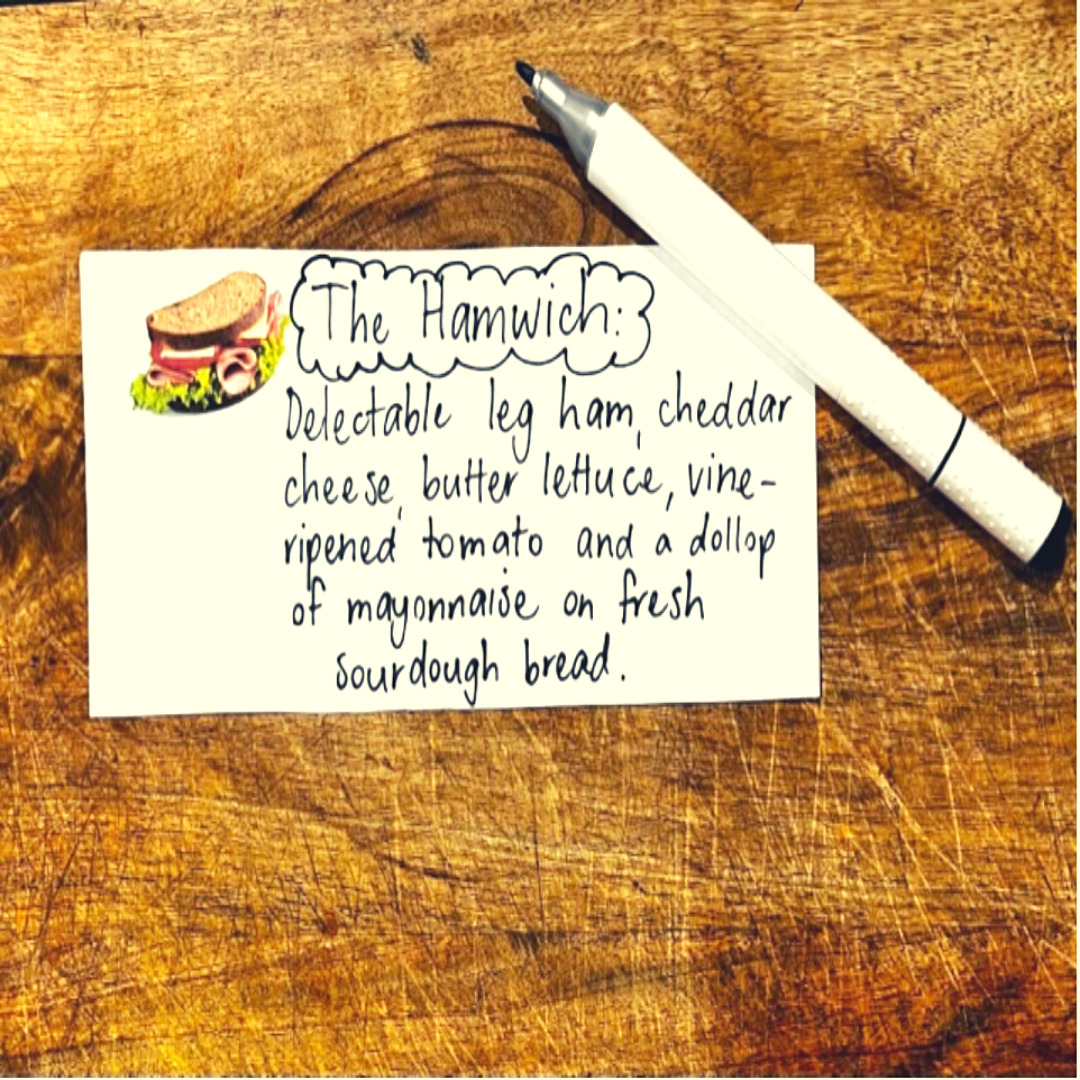 The Hamwich:
Delectable leg ham, cheddar
cheese, butter lettuce, vine-
ripened tomato and a dollop
of mayonnaise on fresh
sourdough bread.